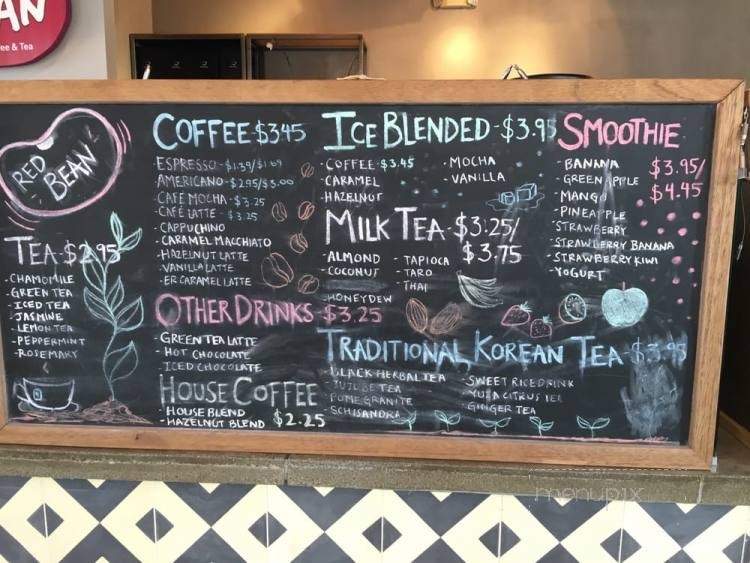 AN
ee & Tea
RED
BEAN
TEA $2.95
-CHAMOMILE
-GREEN TEA
-ICED TEA
-JASMINE
-LEMON TEA
-PEPPERMINT
-ROSEMARY
COFFEE-$3.45
-ESPRESSO-$1.39/$1.69
-AMERICANO-$2.95/$3.00
-CAFE MOCHA-$3.25
-CAFE LATTE-$3.25
-CAPPUCHINO
-CARAMEL MACCHIATO
-HAZELNUT LATTE
-VANILLA LATTE
-ER CARAMEL LATTE
OTHER DRINKS $3.25
-GREEN TEA LATTE
-HOT CHOCOLATE
-ICED CHOCOLATE
HOUSE COFFEE
-HOUSE BLEND
-HAZELNUT BLEND $2.25
ICE BLENDED-$3.95
-COFFEE-$3.45
-CARAMEL
-HAZELNUT
-MOCHA
-VANILLA
MILK TEA-$3.25/
$3.75
-ALMOND
-COCONUT
-HONEYDEW
-TAPIOCA
-TARO
-THAI
SMOOTHIE
$3.95/
$4.45
-BANANA
-GREEN APPLE
-MANGO
-PINEAPPLE
-STRAWBERRY
-STRAWBERRY BANANA
-STRAWBERRY KIWI
-YOGURT
TRADITIONAL KOREAN TEA-$3.95
-BLACK HERBAL TEA
-JUJUBE TEA
-POMEGRANITE
-SCHISANDRA
-SWEET RICE DRINK
-YUZA CITRUS TEA
-GINGER TEA
menupix